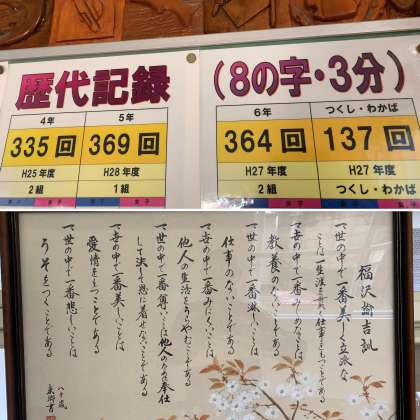 歴代記録
(8の字・3分)
4年 5年 6年 つくし・わかば
335回 369回 364回 137回
H25年度 H28年度 H27年度 H27年度
2組 1組 2組 つくし・わかば
福沢諭吉訓
一、世の中で一番楽しく立派な
ことは一生涯を貫く仕事をもつことである
一、世の中で一番みじめなことは
教養のないことである
一、世の中で一番淋しいことは
仕事のないことである
一、世の中で一番みにくいことは
他人の生活をうらやむことである
一、世の中で一番尊いことは他人のため奉仕
して決して恩に着せないことである
一、世の中で一番美しいことは
愛情をもつことである
一、世の中で一番悲しいことは
うそをつくことである
八十歳